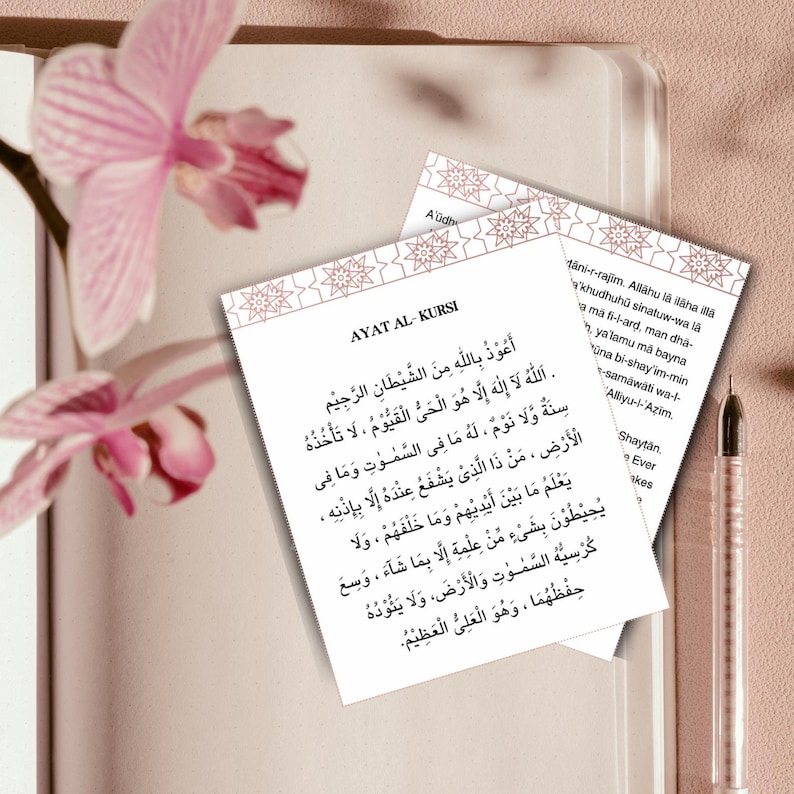 AYAT AL- KURSI
أَعُوْذُ بِاللّٰهِ مِنَ الشَّيْطَانِ الرَّجِيْمِ
. اَللّٰهُ لَآ إِلٰهَ إِلَّا هُوَ الْحَىُّ الْقَيُّوْمُ ، لَا تَأْخُذُهُ
سِنَةٌ وَّلَا نَوْمٌ ، لَهُ مَا فِى السَّمٰوٰتِ وَمَا فِى
الْأَرْضِ ، مَنْ ذَا الَّذِىْ يَشْفَعُ عِنْدَهُ إِلَّا بِإِذْنِهِ ،
يَعْلَمُ مَا بَيْنَ أَيْدِيْهِمْ وَمَا خَلْفَهُمْ ، وَلَا
يُحِيْطُوْنَ بِشَىْءٍ مِّنْ عِلْمِهِ إِلَّا بِمَا شَآءَ ، وَسِعَ
كُرْسِيُّهُ السَّمٰوٰتِ وَالْأَرْضَ، وَلَا يَئُوْدُهُ
حِفْظُهُمَا ، وَهُوَ الْعَلِىُّ الْعَظِيْمُ.
A'ūdhu
tāni-r-rajīm. Allāhu lā ilāha illā
a'khudhuhū sinatuw-wa lā
a mā fi-l-arḍ, man dhā-
ya'lamu mā bayna
ūna bi-shay'im-min
-samāwāti wa-l-
'Alliyu-l-'Aẓīm.
Shayṭān.
e Ever
akes